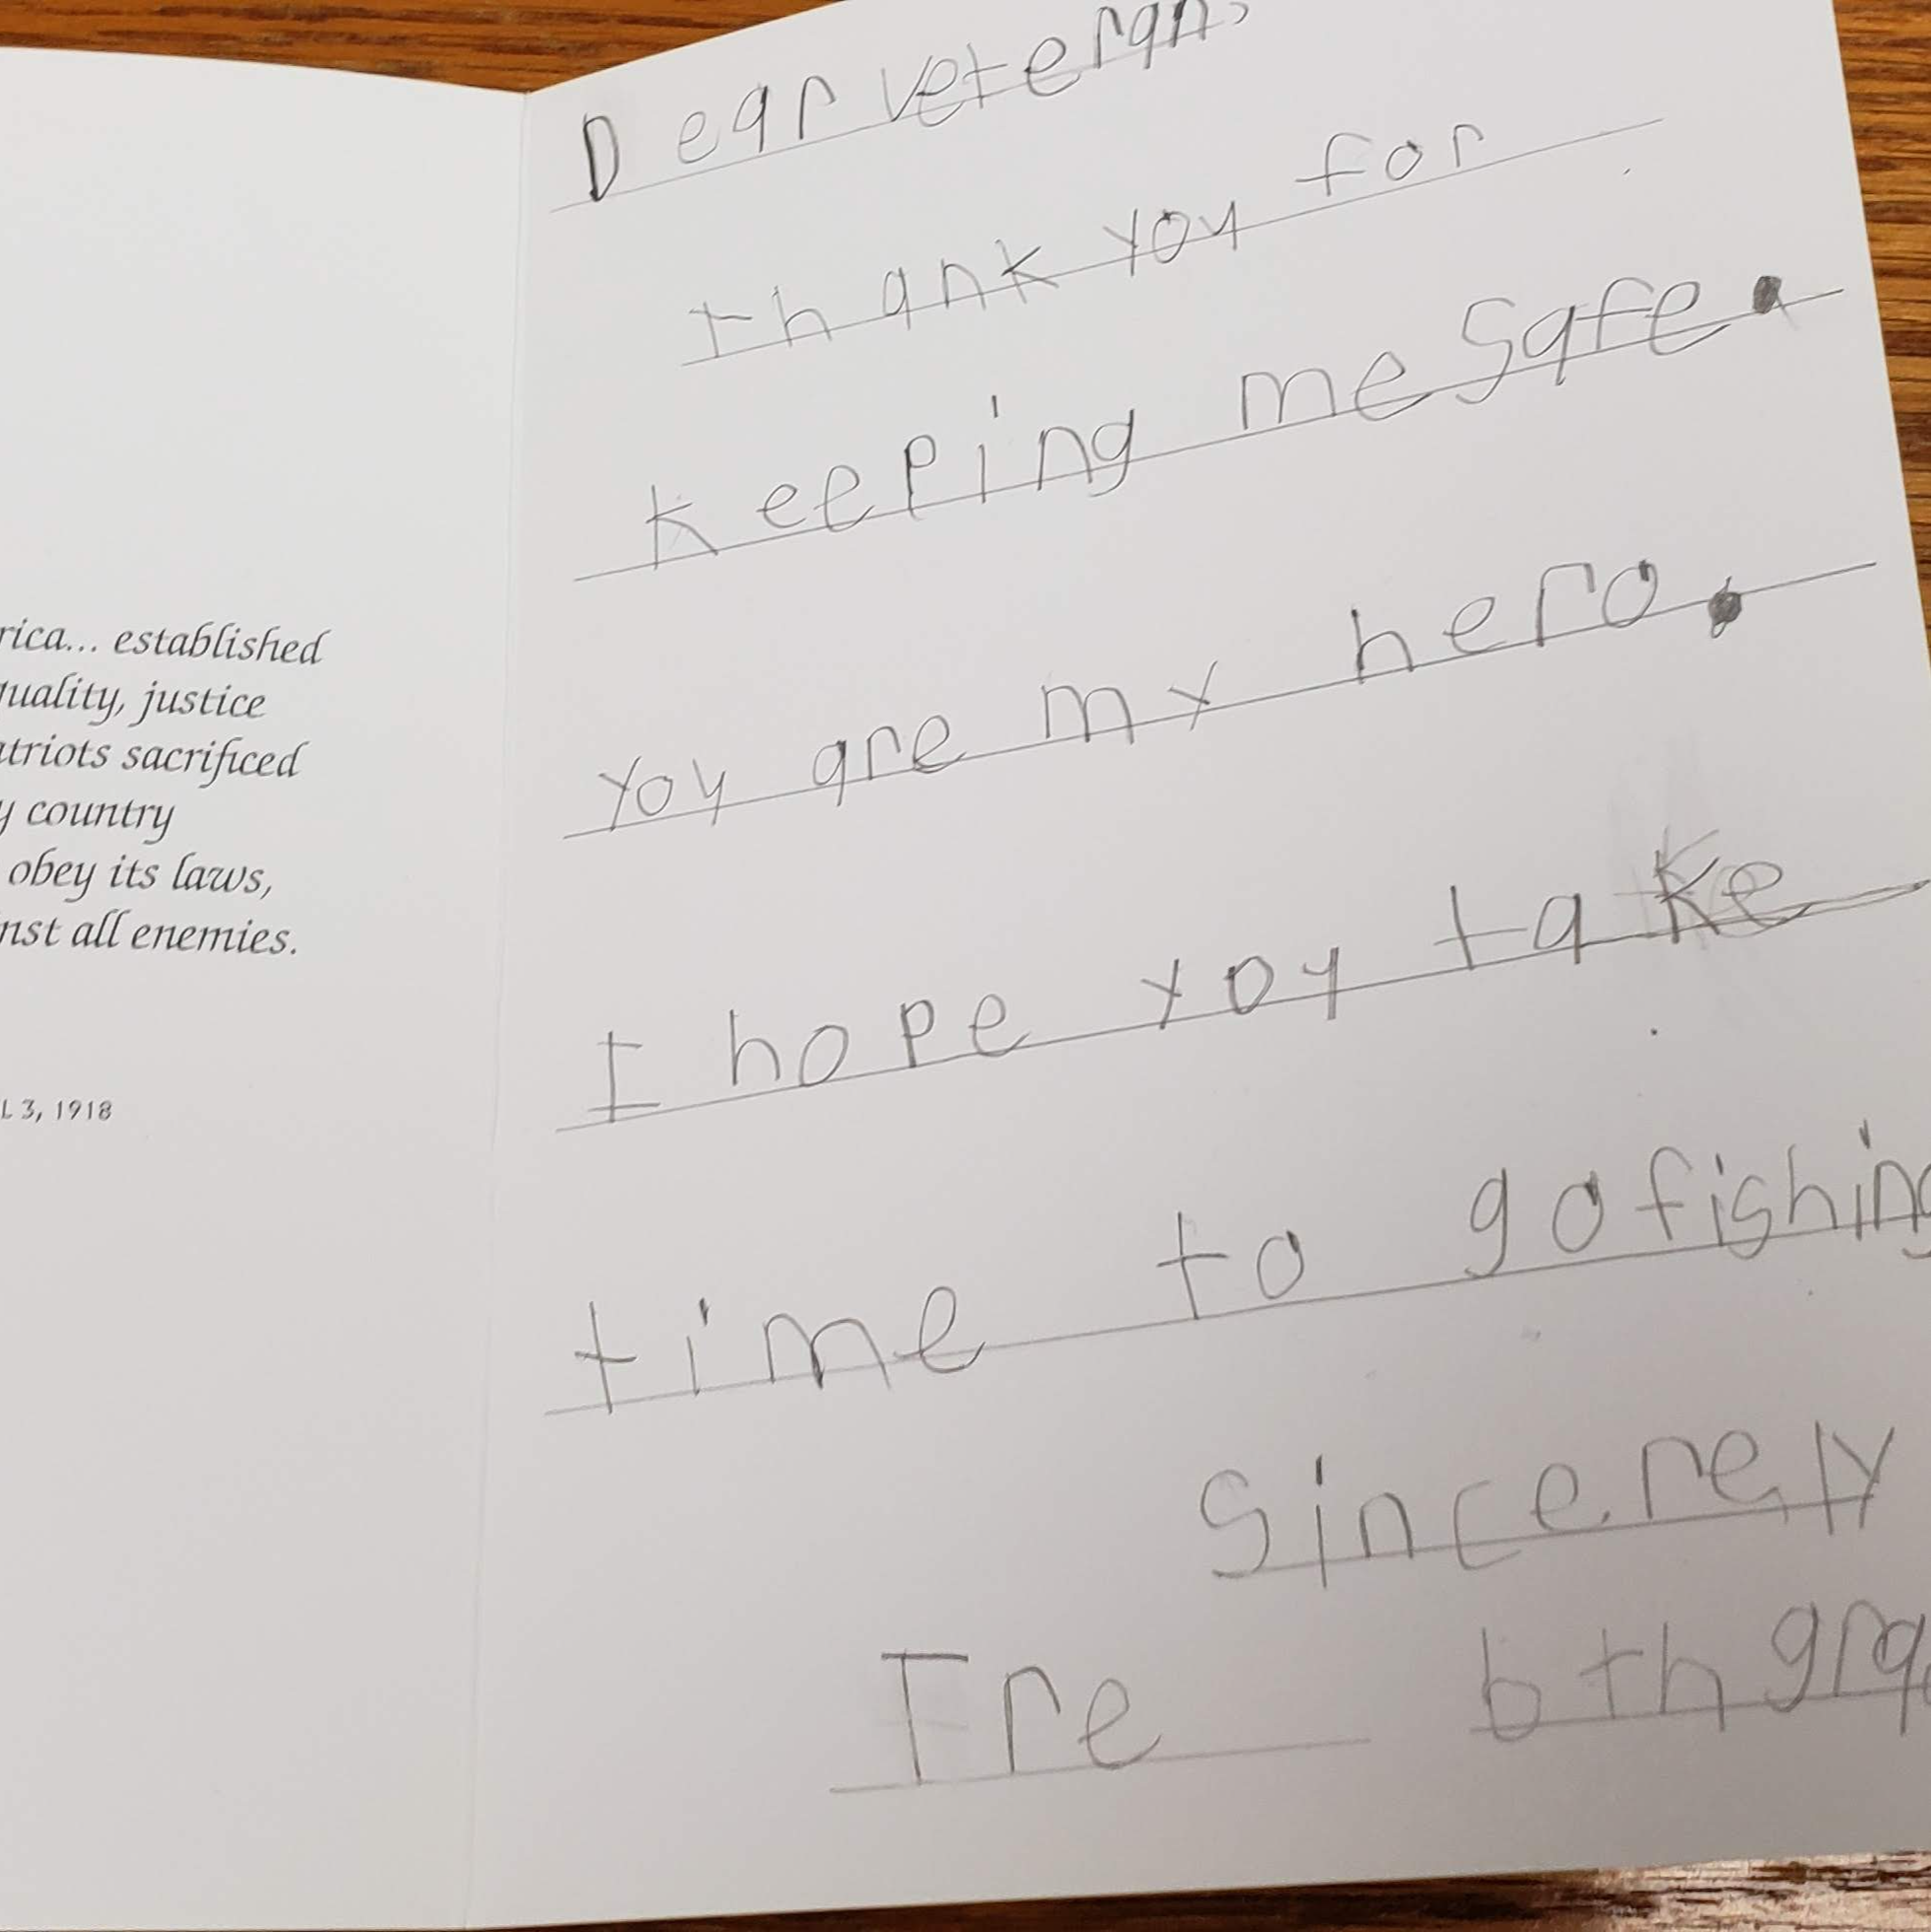 rica... established
quality, justice
triots sacrificed
y country
obey its laws,
nst all enemies.
L 3, 1918
Dear veteran,
thank you for
keeping me safe.
you are my hero.
I hope you take
time to go fishing
Sincerely
Tre 6th gra